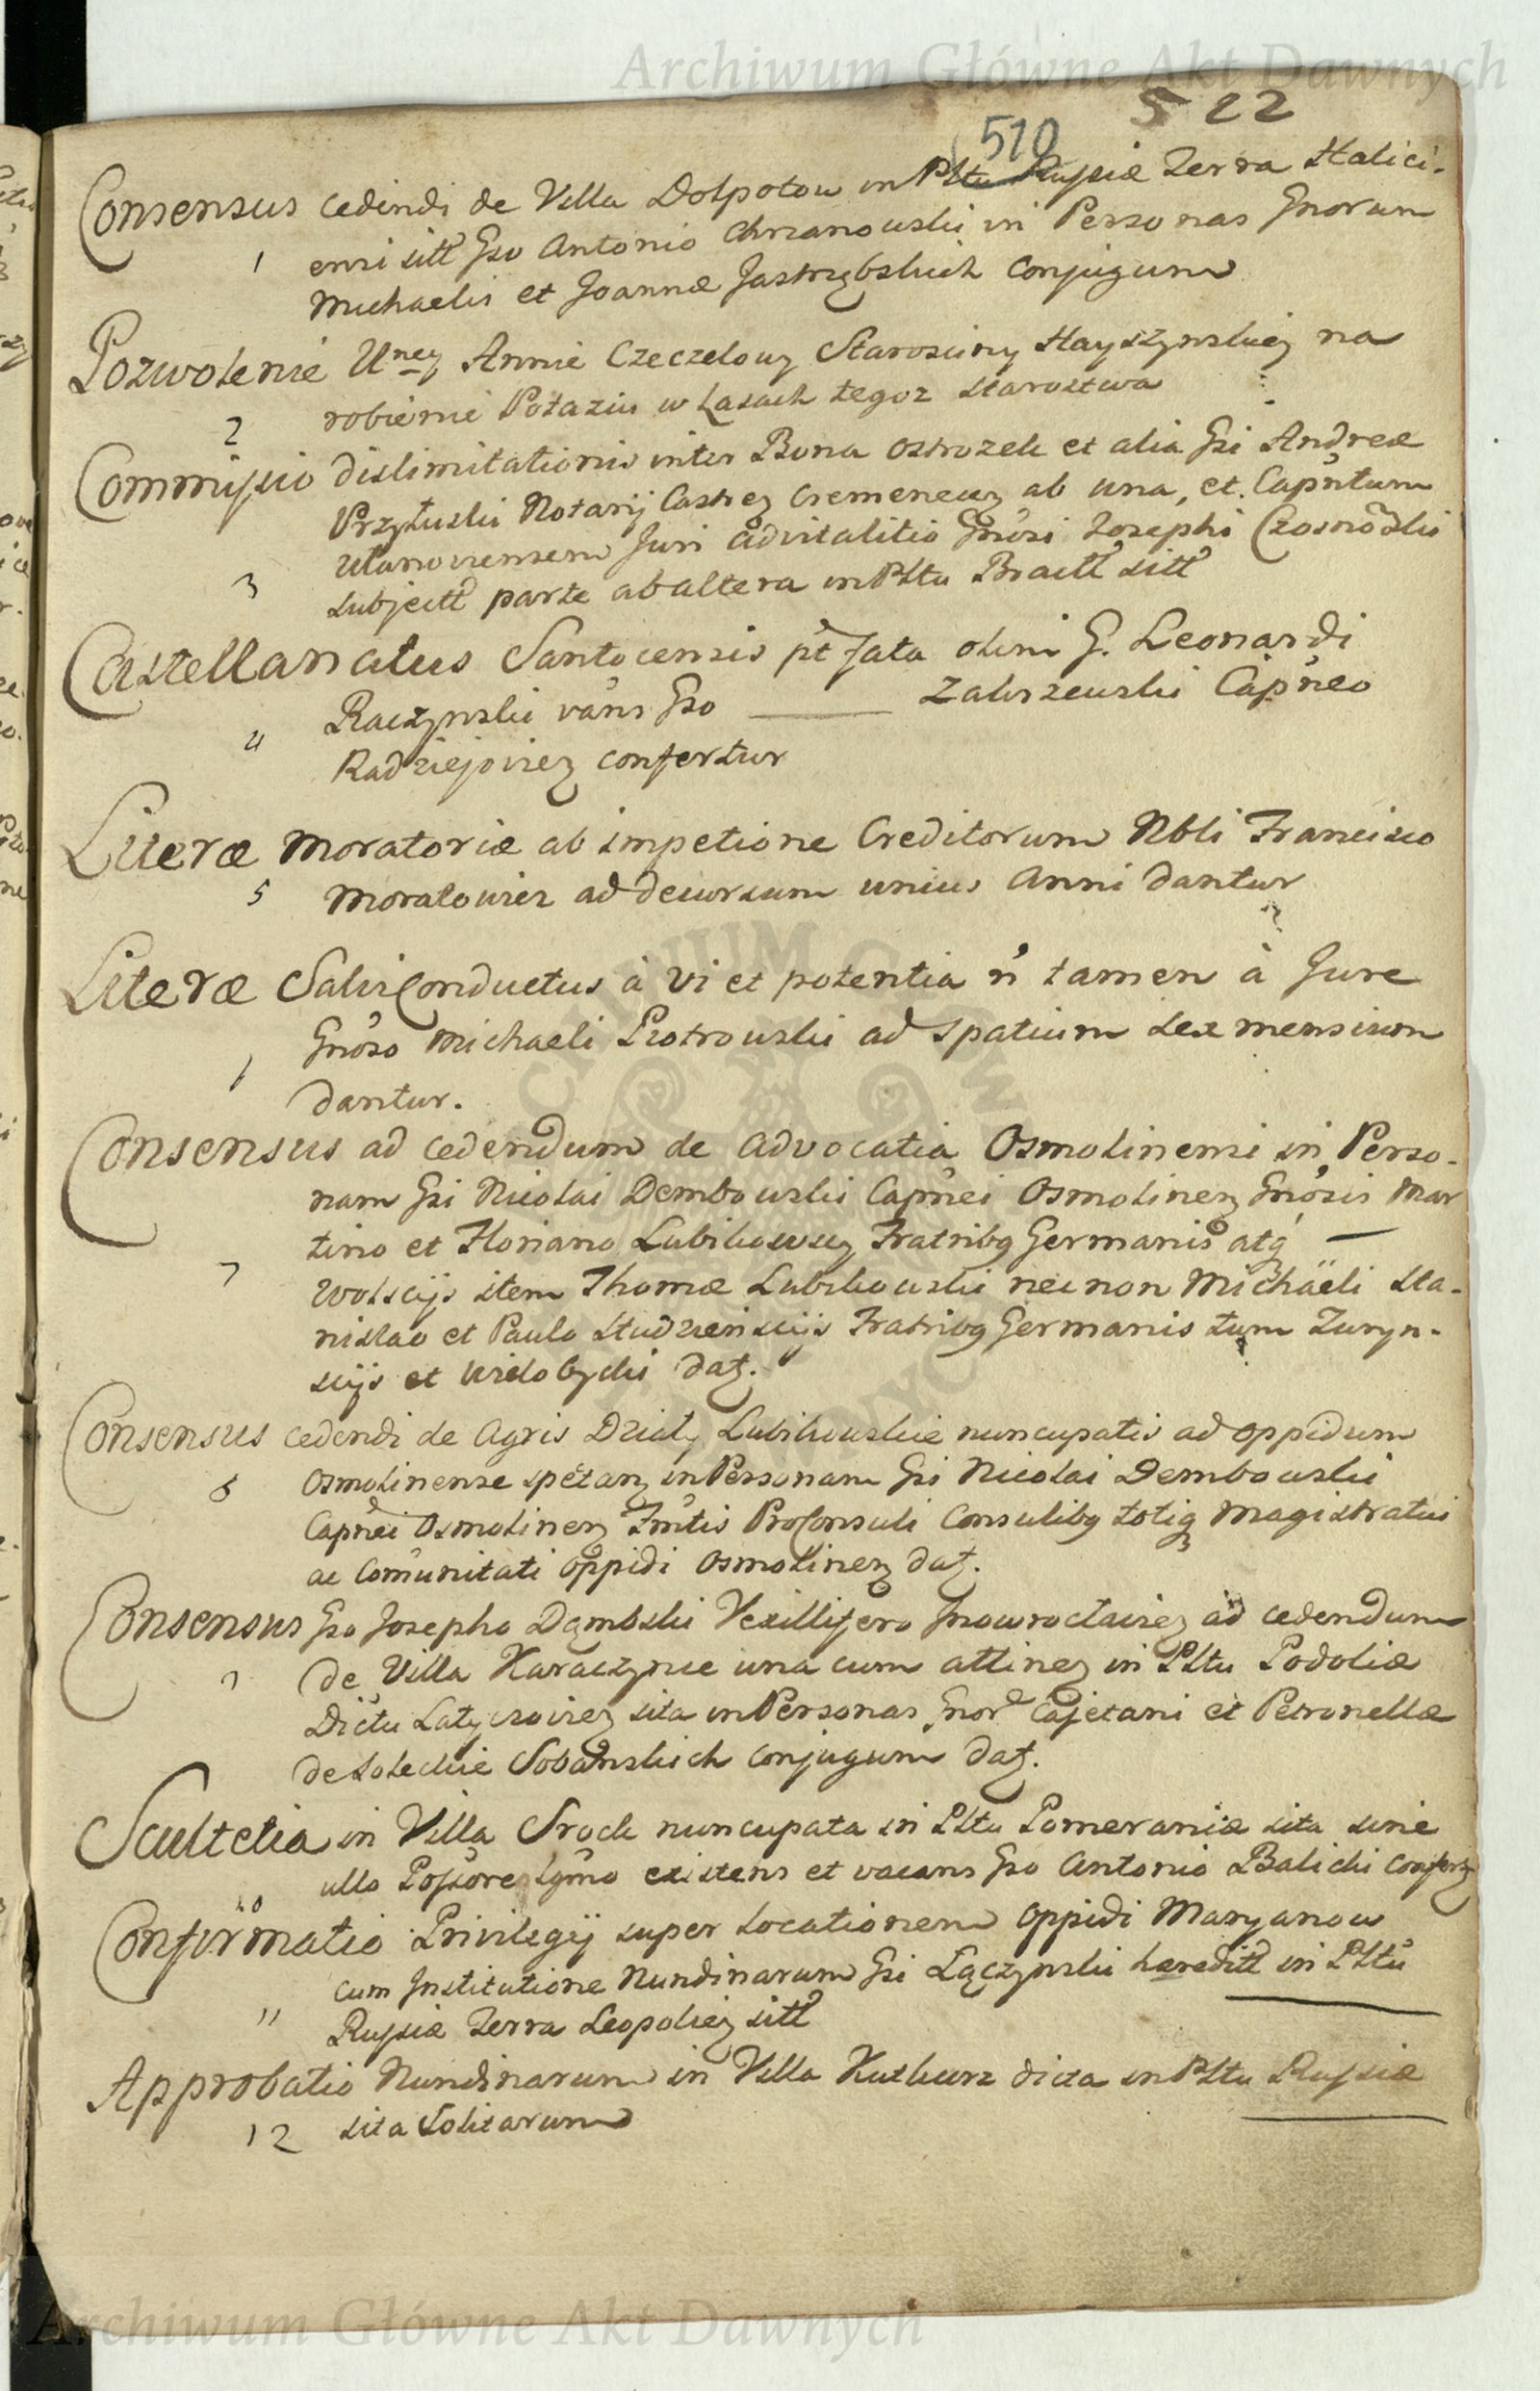 Archiwum Główne Akt Dawnych
522
510
Consensus cedendi de Villa Dolpotow in Pltu Russiæ Terra Halici-
1 ensi sitt Gso Antonio Chrzanowski in Personas Gnorum
Michaelis et Joannæ Jastrzębskich Conjugum
Pozwolenie Uney Annie Czeczelowy Starosciny Hayszynskiey na
2 robienie Potaziu w Lasach tegoz Starostwa
Commissio dislimitationis inter Bona Ostrozek et alia Gsi Andreæ
Przyłuski Notarij Castrez Cremenecez ab una, et Capntum
Ulanoviensem Juri advitalitio Gnosi Josephi Czosnowski
3 subjectt parte ab altera in Pltu Bractt sitt
Castellanatus Santocensis pt fata olim G. Leonardi
4 Raczynski vans Gso ——— Zakrzewski Capneo
Radziejoviez confertur
Literæ Moratoriæ ab impetione Creditorum Nbli Francisco
5 Moratowicz ad decursum unius Anni dantur
Literæ Salvi Conductus à vi et potentia n tamen à Jure
Gnoso Michaeli Piotrowski ad spatium sex mensium
dantur.
Consensus ad cedendum de Advocatia Osmolinensi in Perso-
nam Gsi Nicolai Dembowski Capnei Osmolinez Gnosis Mar
tino et Floriano Lubikowscy Fratribq Germanis atq —
7 Wolscijs item Thomæ Lubikowski nec non Michäeli Sta-
nislao et Paulo Studzienscijs Fratribq Germanis tum Zuryn-
scijs et Wielobycki datz.
Consensus cedendi de Agris Działy Lubikowskie nuncupatis ad oppidum
8 Osmolinense spetanz in Personam Gsi Nicolai Dembowski
Capnei Osmolinez Fmtis Pro Consuli Consulibq totiq Magistratui
ac Comunitati oppidi Osmolinez datz.
Consensus Gso Josepho Dąmbski Vexillifero Jnowrocłaviez ad cedendum
9 de Villa Karaczynce una cum attinez in Pltu Podoliæ
Dictu Latyczoviez sita in Personas Gnor Cajetani et Petronellæ
de Soleckie Sobanskich Conjugum datz.
Scultetia in Villa Srock nuncupata in Pltu Pomeraniæ sita sine
10 ullo Possore lgmo existens et vacans Gso Antonio Balicki Confertz
Confirmatio Privilegij super locationem oppidi Maryanow
cum Institutione Nundinarum Gsi Łączynski hæreditt in Pltu
11 Russiæ Terra Leopoliez sitt
Approbatio Nundinarum in Villa Kutkurz dicta in Pltu Russiæ
12 sita Solitarum
Archiwum Główne Akt Dawnych